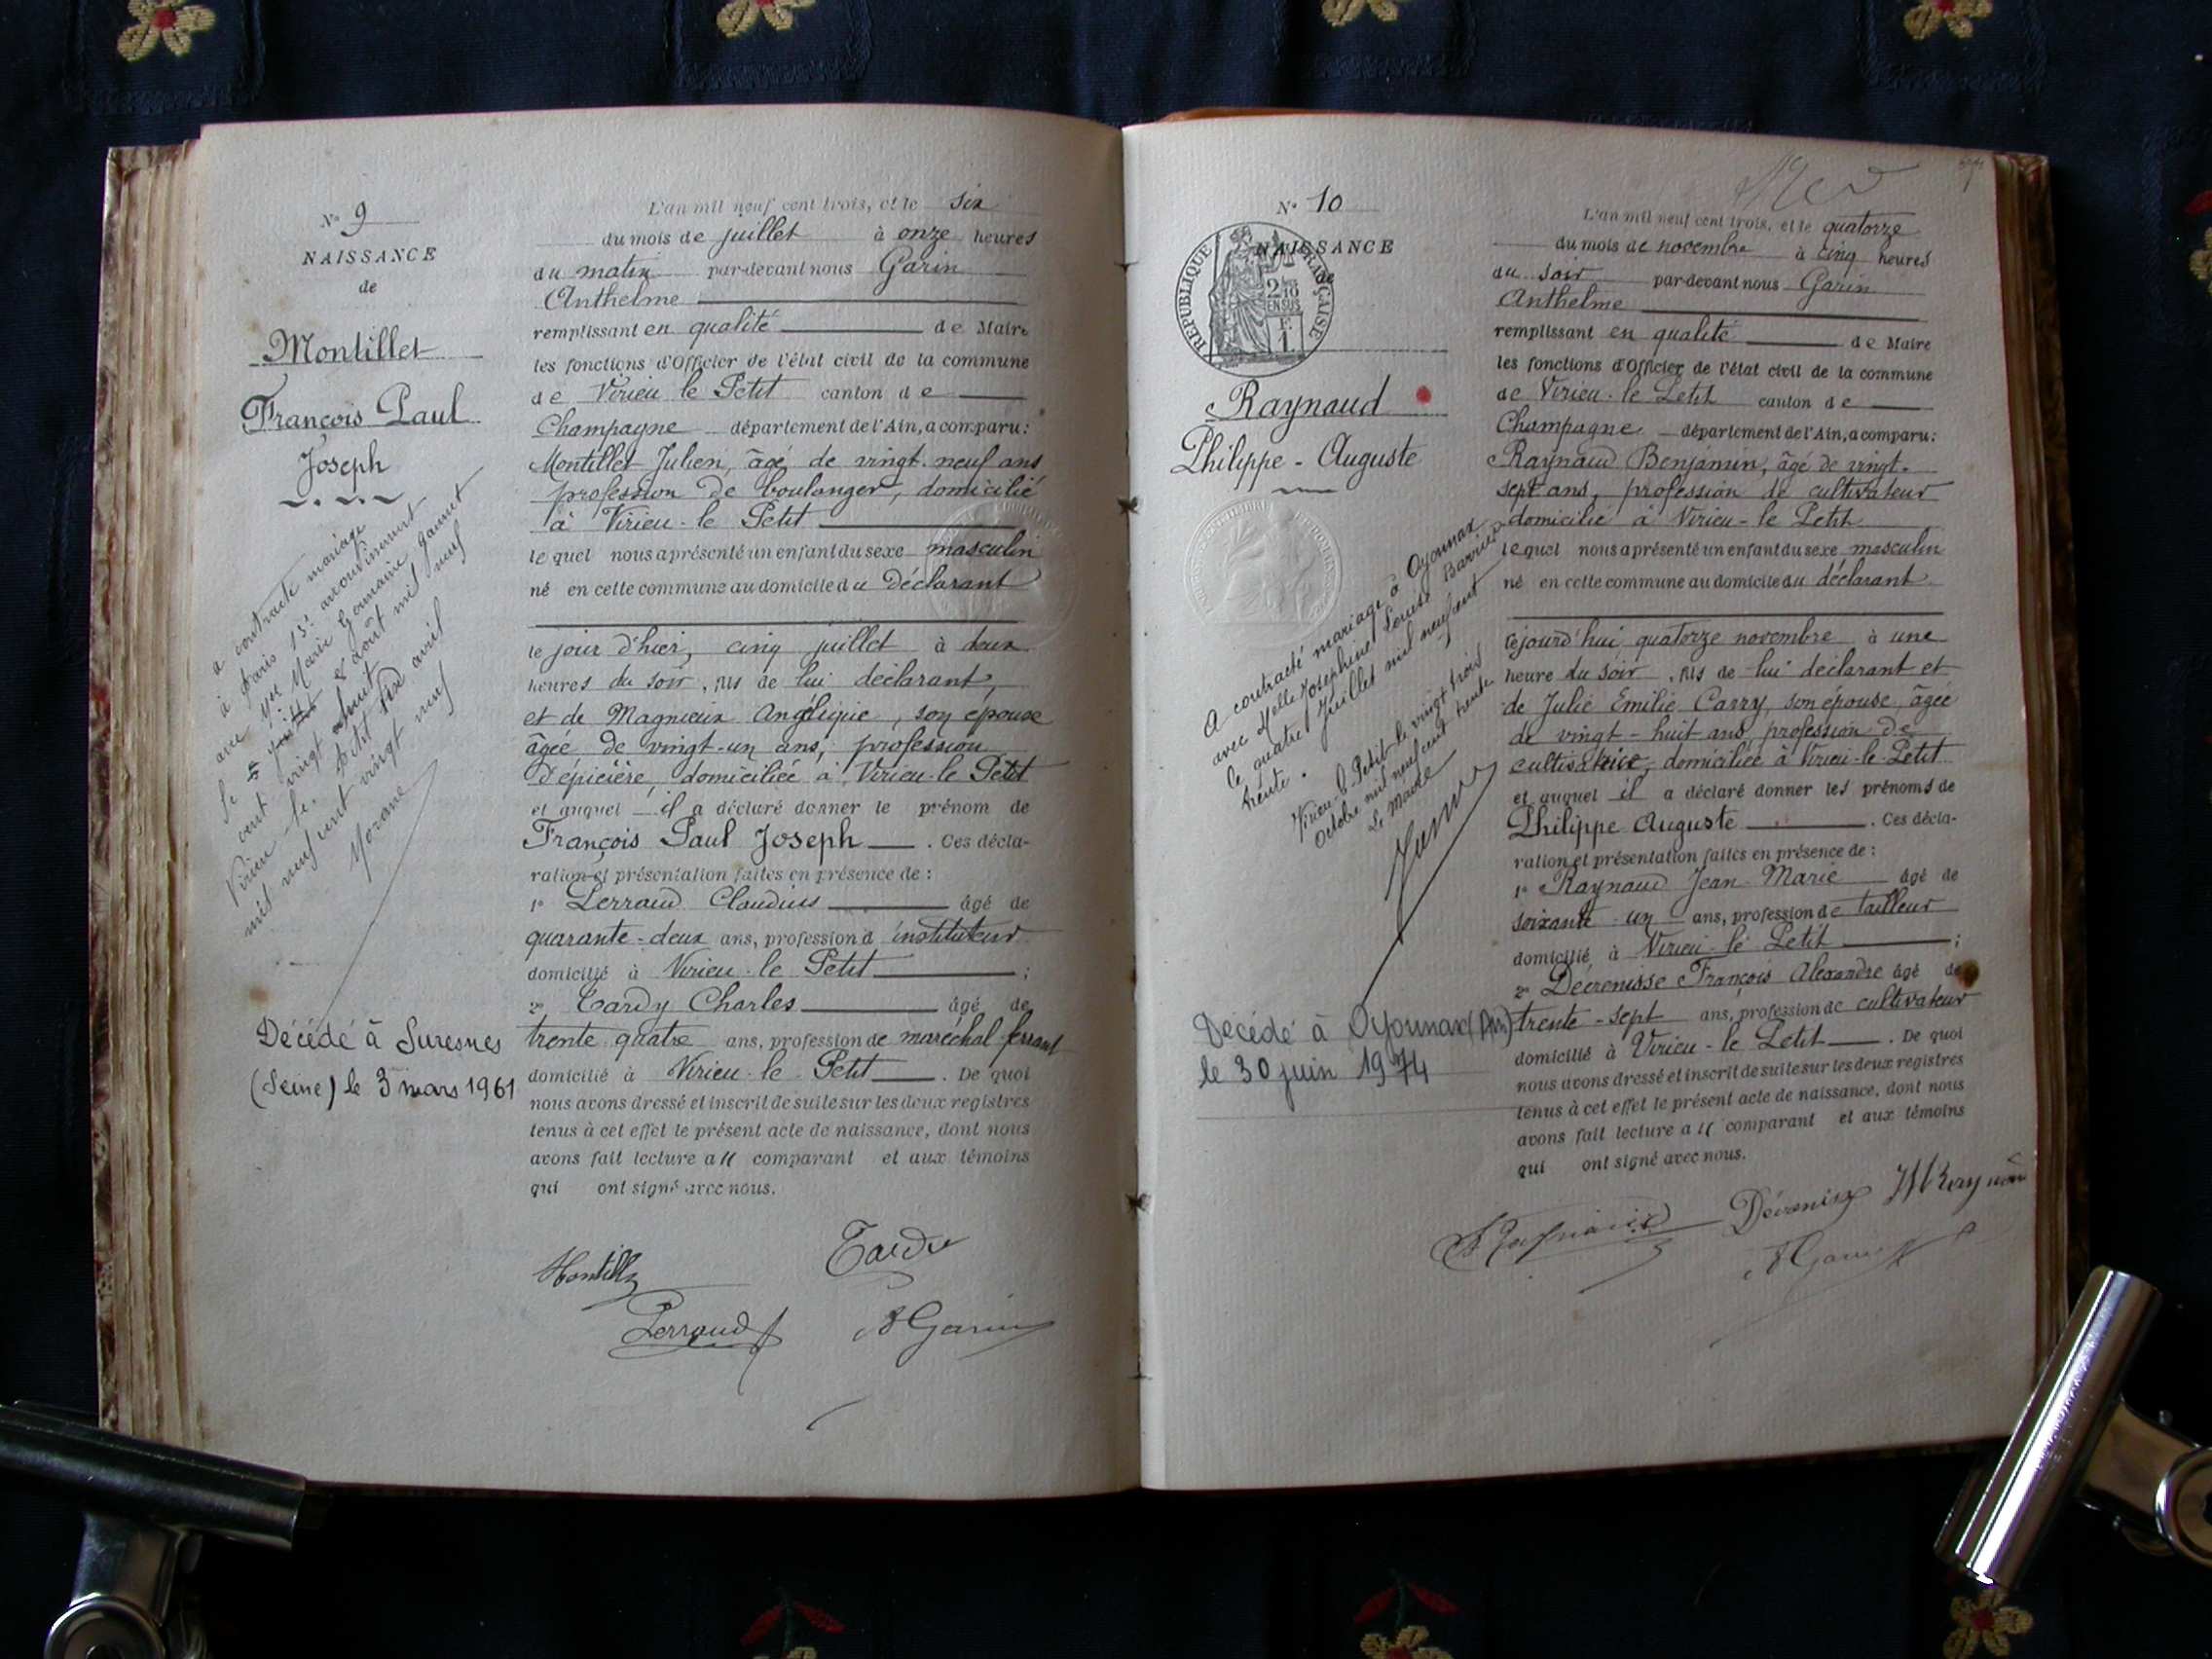 N° 9
NAISSANCE
de
Montillet
François Paul
Joseph
a contracté mariage
à Paris 15e arrondissement
avec Marie Germaine
le 8 août mil neuf
cent vingt huit
Virieu le Petit six avril
mil neuf cent vingt neuf
Décédé à Suresnes
(Seine) le 3 mars 1961
L'an mil neuf cent trois, et le six
du mois de juillet à onze heures
du matin par-devant nous Garin
Anthelme
remplissant en qualité de Maire
les fonctions d'Officier de l'état civil de la commune
de Virieu le Petit canton de
Champagne département de l'Ain, a comparu:
Montillet Julien, âgé de vingt-neuf ans
profession de boulanger, domicilié
à Virieu-le Petit
lequel nous a présenté un enfant du sexe masculin
né en cette commune au domicile du déclarant
le jour d'hier, cinq juillet à deux
heures du soir, fils de lui déclarant,
et de Magnieux Angélique, son épouse
âgée de vingt-un ans, profession
d'épicière, domiciliée à Virieu-le Petit
et auquel il a déclaré donner le prénom de
François Paul Joseph. Ces décla-
ration et présentation faites en présence de:
1° Perraud Claudius âgé de
quarante-deux ans, profession d instituteur
domicilié à Virieu-le Petit;
2° Tardy Charles âgé de
trente quatre ans, profession de maréchal ferrant
domicilié à Virieu-le-Petit. De quoi
nous avons dressé et inscrit de suite sur les deux registres
tenus à cet effet le présent acte de naissance, dont nous
avons fait lecture au comparant et aux témoins
qui ont signé avec nous.
Tardy
Perraud
A Garin
N° 10
NAISSANCE
de
REPUBLIQUE FRANÇAISE
2/10 EN SUS
F. 1
Raynaud
Philippe-Auguste
A contracté mariage à Oyonnax
avec Melle Joséphine Louise
le quatre Juillet mil neuf cent
trente.
Virieu-le Petit le vingt trois
Octobre mil neuf cent trente
Le Maire
Décédé à Oyonnax (Ain)
le 30 juin 1974
L'an mil neuf cent trois, et le quatorze
du mois de novembre à cinq heures
du soir par-devant nous Garin
Anthelme
remplissant en qualité de Maire
les fonctions d'Officier de l'état civil de la commune
de Virieu-le Petit canton de
Champagne département de l'Ain, a comparu:
Raynaud Benjamin, âgé de vingt-
sept ans, profession de cultivateur
domicilié à Virieu-le Petit
lequel nous a présenté un enfant du sexe masculin
né en cette commune au domicile du déclarant
cejourd'hui quatorze novembre à une
heure du soir, fils de lui déclarant et
de Julie Emilie Carry, son épouse, âgée
de vingt-huit ans, profession de
cultivatrice, domiciliée à Virieu-le-Petit
et auquel il a déclaré donner les prénoms de
Philippe Auguste. Ces décla-
ration et présentation faites en présence de:
1° Raynaud Jean-Marie âgé de
soixante-un ans, profession de tailleur
domicilié à Virieu-le-Petit;
2° Décrenisse François Alexandre âgé de
trente-sept ans, profession de cultivateur
domicilié à Virieu-le Petit. De quoi
nous avons dressé et inscrit de suite sur les deux registres
tenus à cet effet le présent acte de naissance, dont nous
avons fait lecture au comparant et aux témoins
qui ont signé avec nous.
A Garin